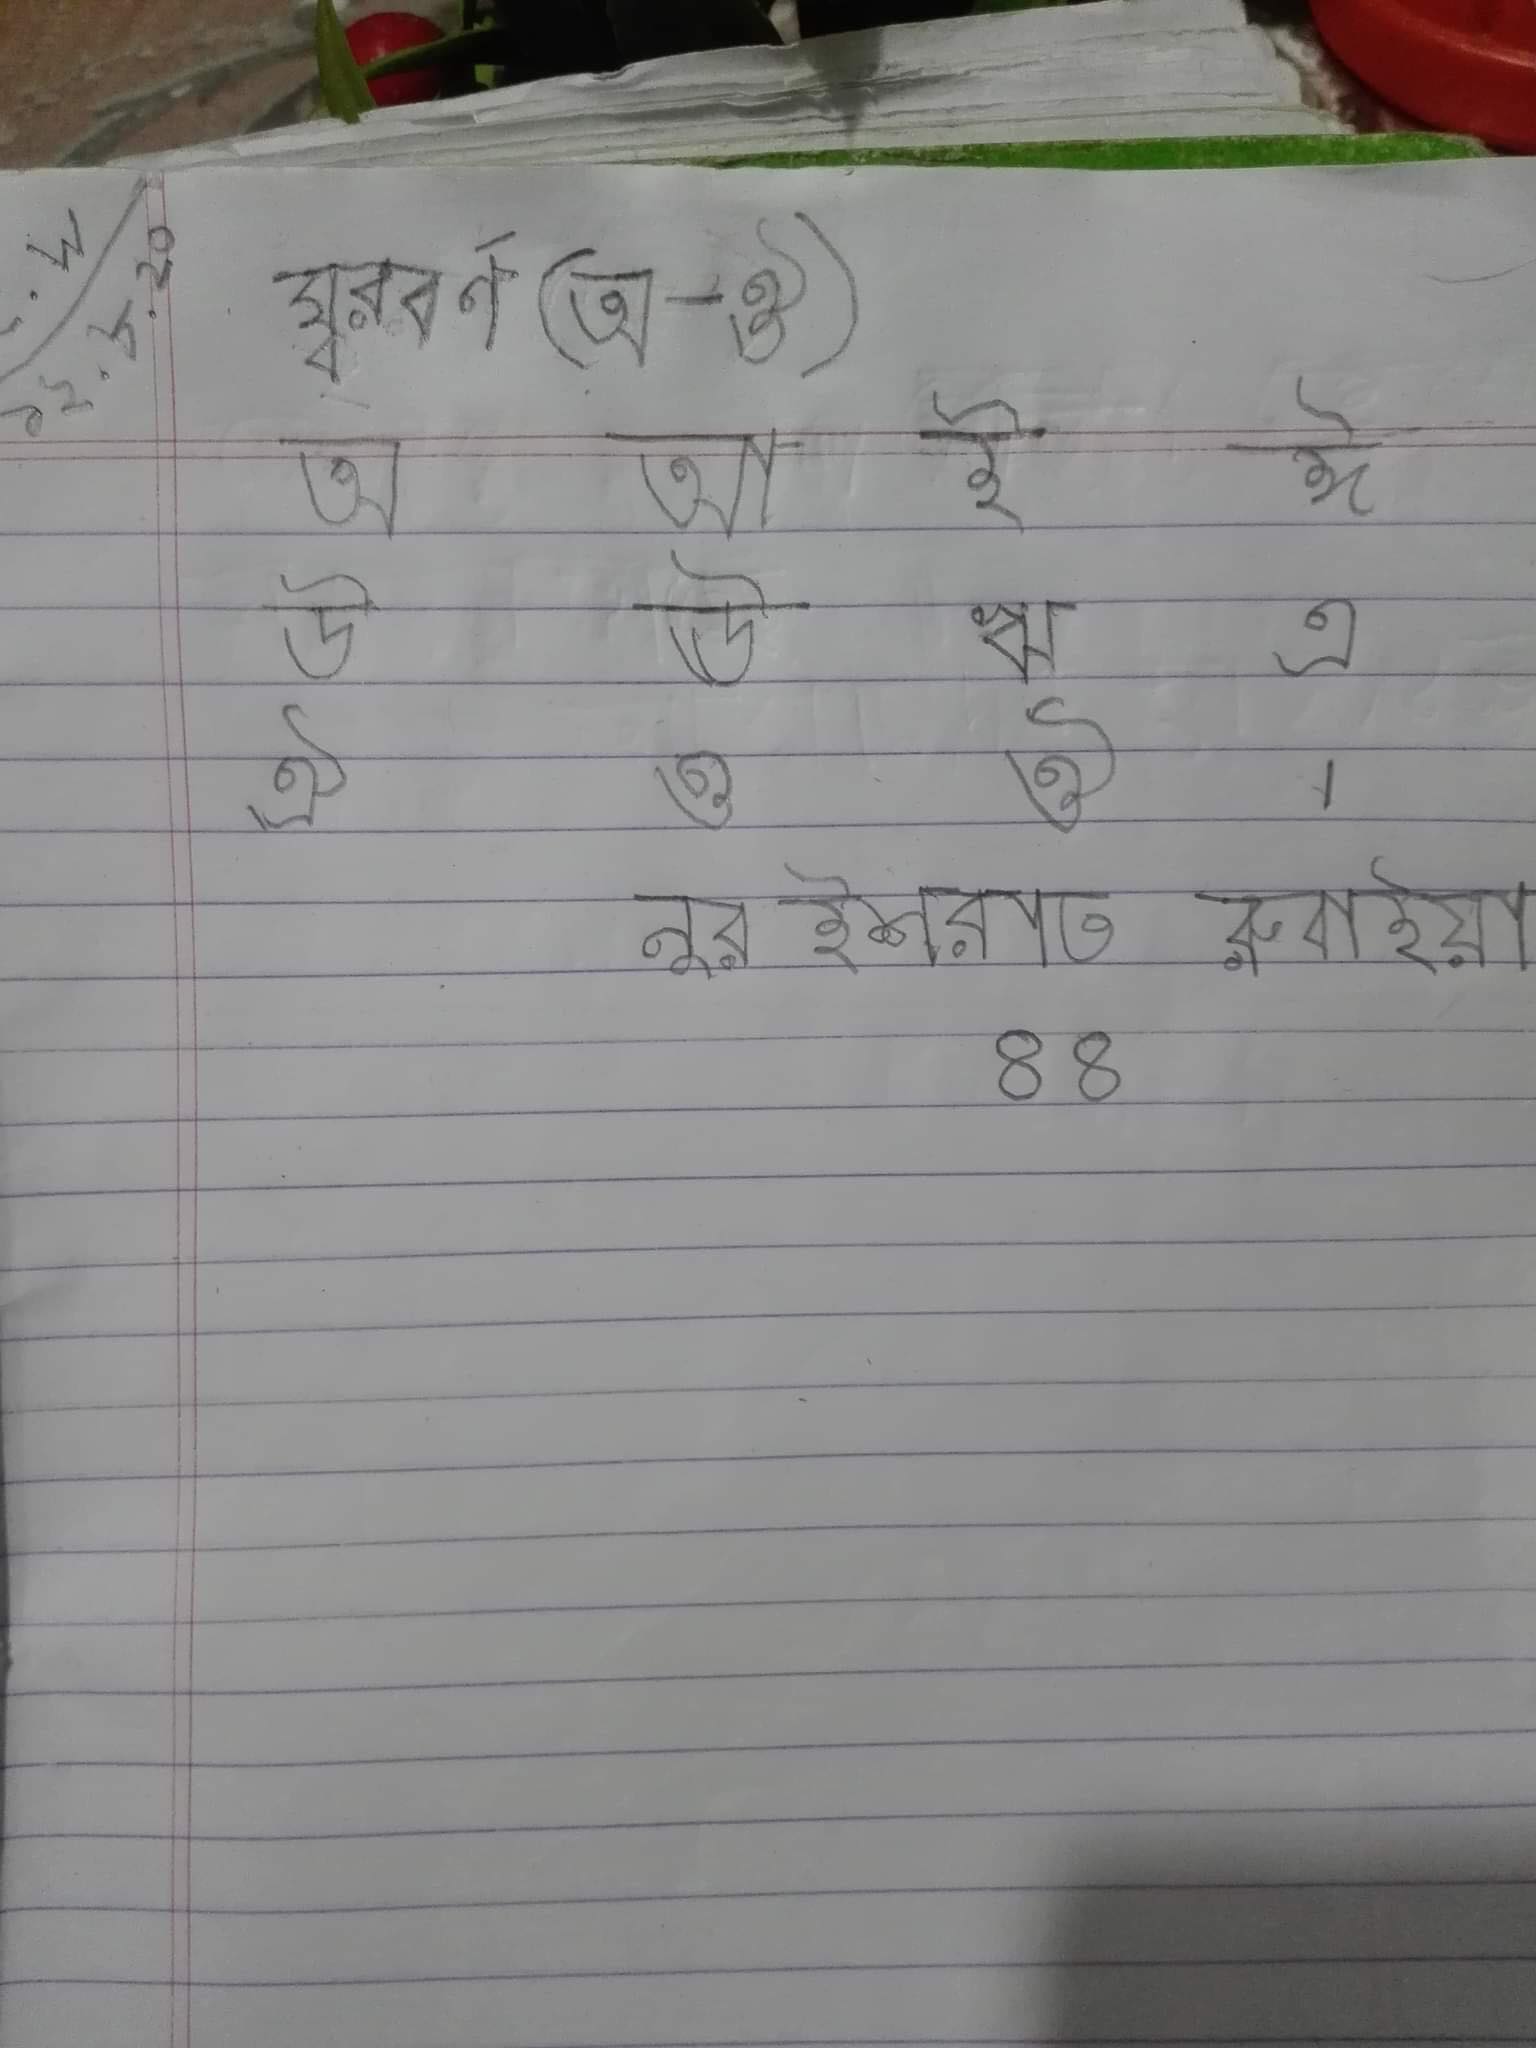 স্বরবর্ণ (অ-ঔ)
অ আ ই ঈ
উ ঊ ঋ এ
ঐ ও ঔ ।
নুর ইশরাত রুবাইয়া
৪৪